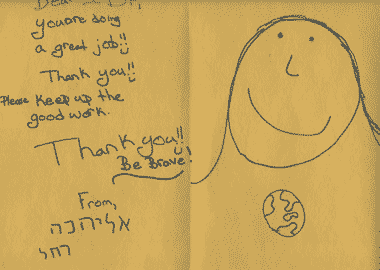 Dear
you are doing
a great job!!
Thank you!!
Please Keep up the
good work.
Thank you!!
Be Brave!
From,
אליהנה
רחל